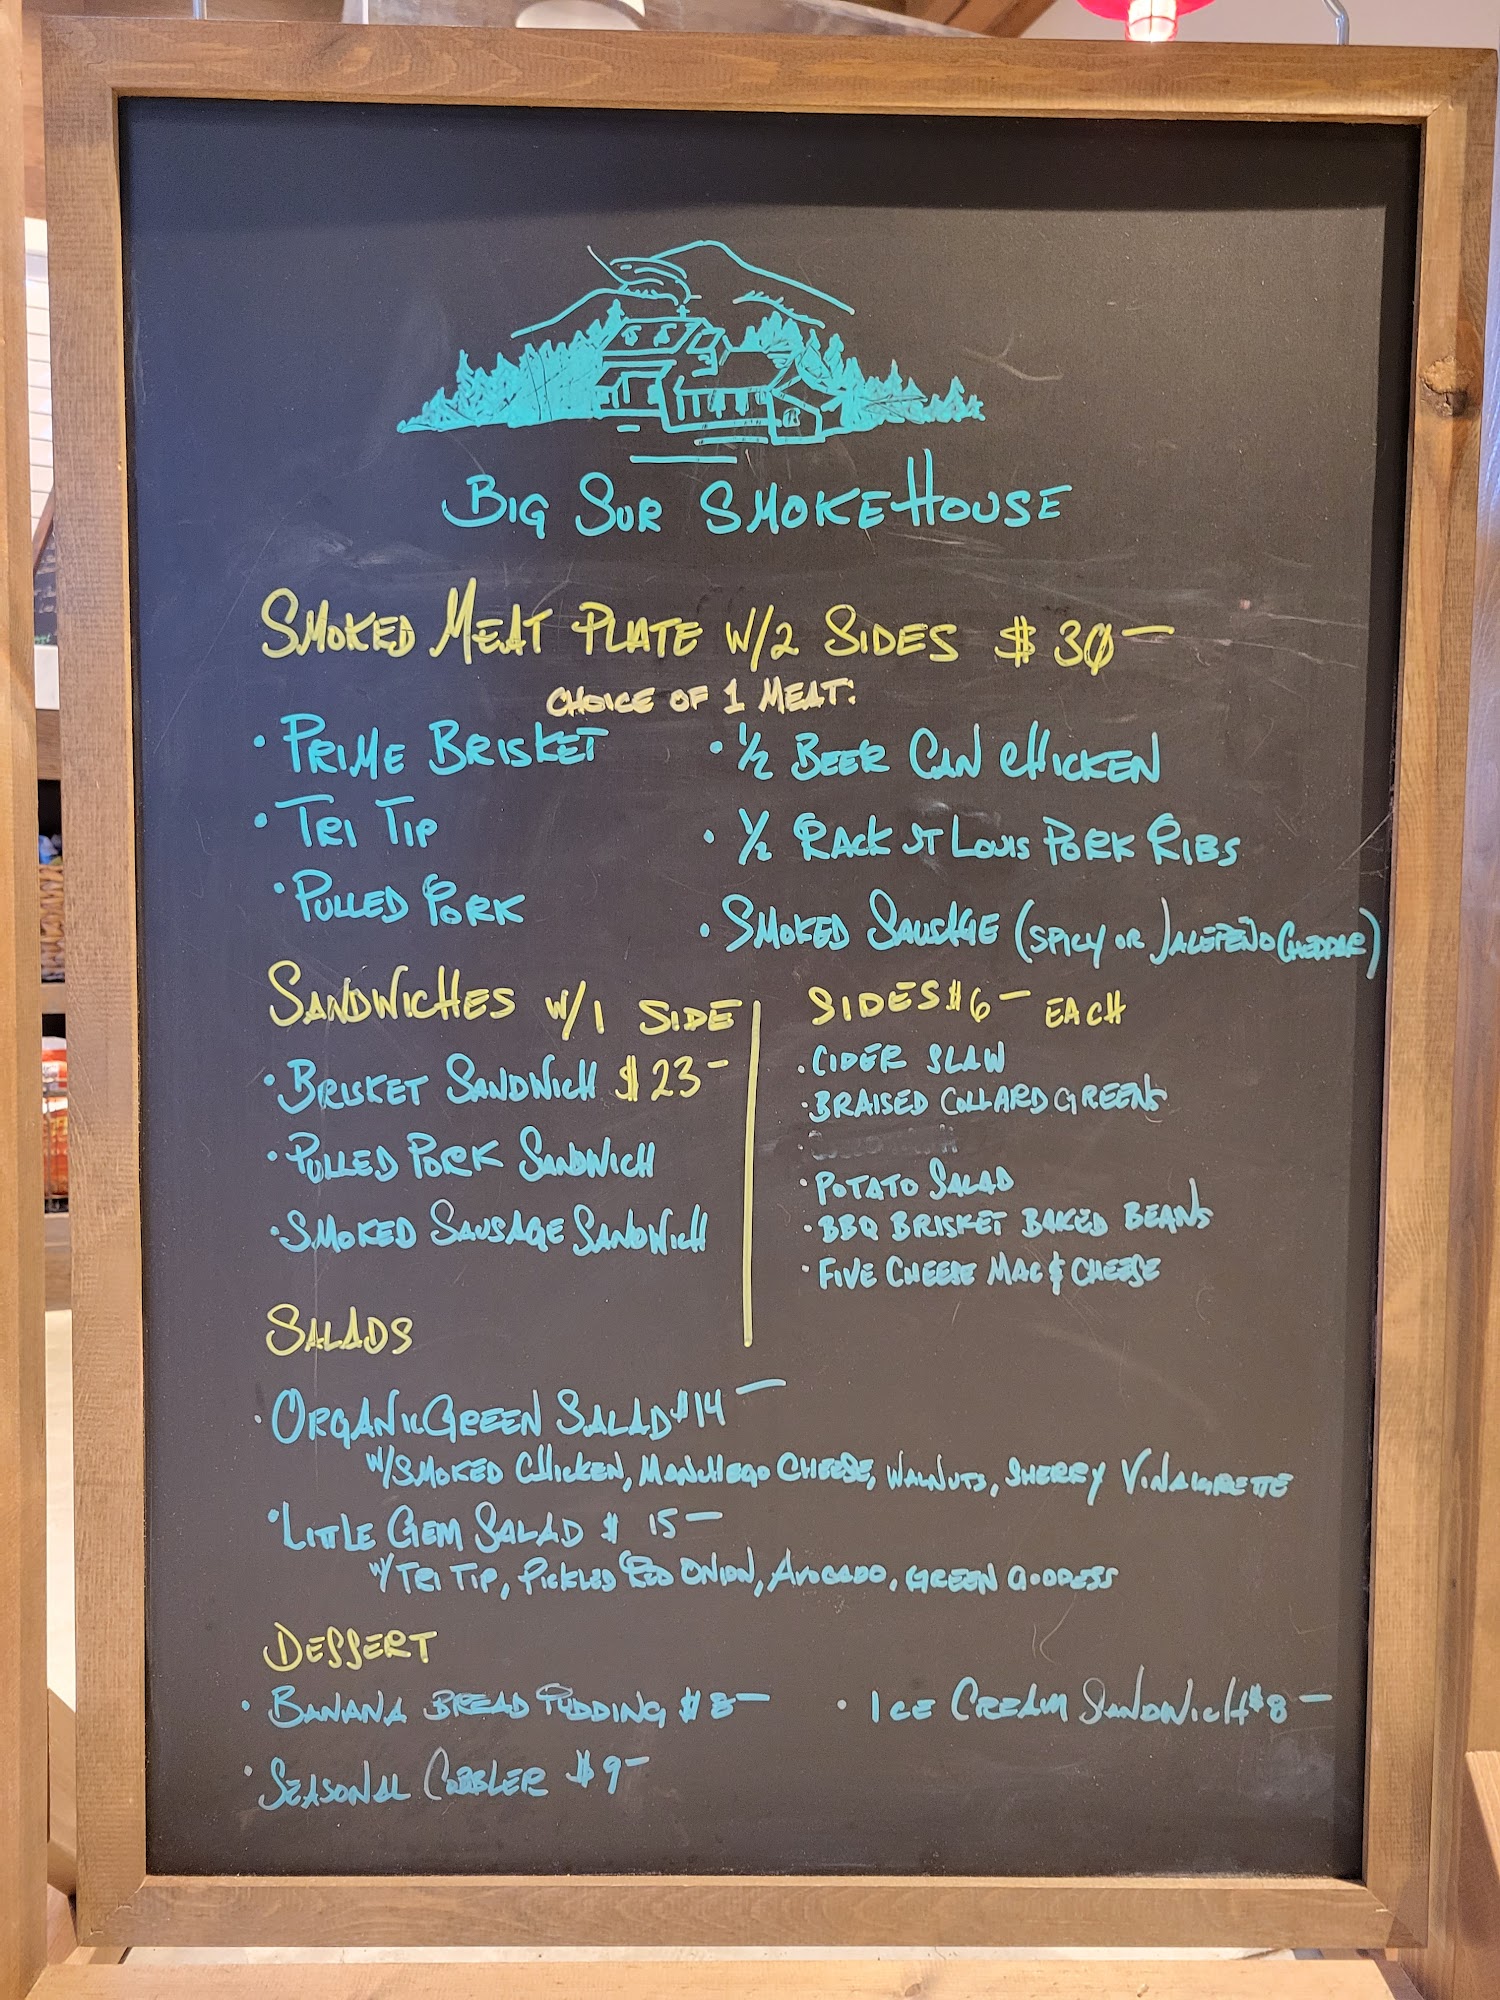 BIG SUR SMOKEHOUSE
SMOKED MEAT PLATE W/2 SIDES $30-
CHOICE OF 1 MEAT:
• PRIME BRISKET
• TRI TIP
• PULLED PORK
• 1/2 BEER CAN CHICKEN
• 1/2 RACK ST LOUIS PORK RIBS
• SMOKED SAUSAGE (SPICY OR JALEPEÑO CHEDDAR)
SANDWICHES W/1 SIDE
• BRISKET SANDWICH $23-
• PULLED PORK SANDWICH
• SMOKED SAUSAGE SANDWICH
SIDES $6- EACH
• CIDER SLAW
• BRAISED COLLARD GREENS
• POTATO SALAD
• BBQ BRISKET BAKED BEANS
• FIVE CHEESE MAC & CHEESE
SALADS
• ORGANIC GREEN SALAD $14-
W/SMOKED CHICKEN, MANCHEGO CHEESE, WALNUTS, SHERRY VINAIGRETTE
• LITTLE GEM SALAD $ 15-
W/TRI TIP, PICKLED RED ONION, AVOCADO, GREEN GODDESS
DESSERT
• BANANA BREAD PUDDING $8-
• ICE CREAM SANDWICH $8-
• SEASONAL COBBLER $9-